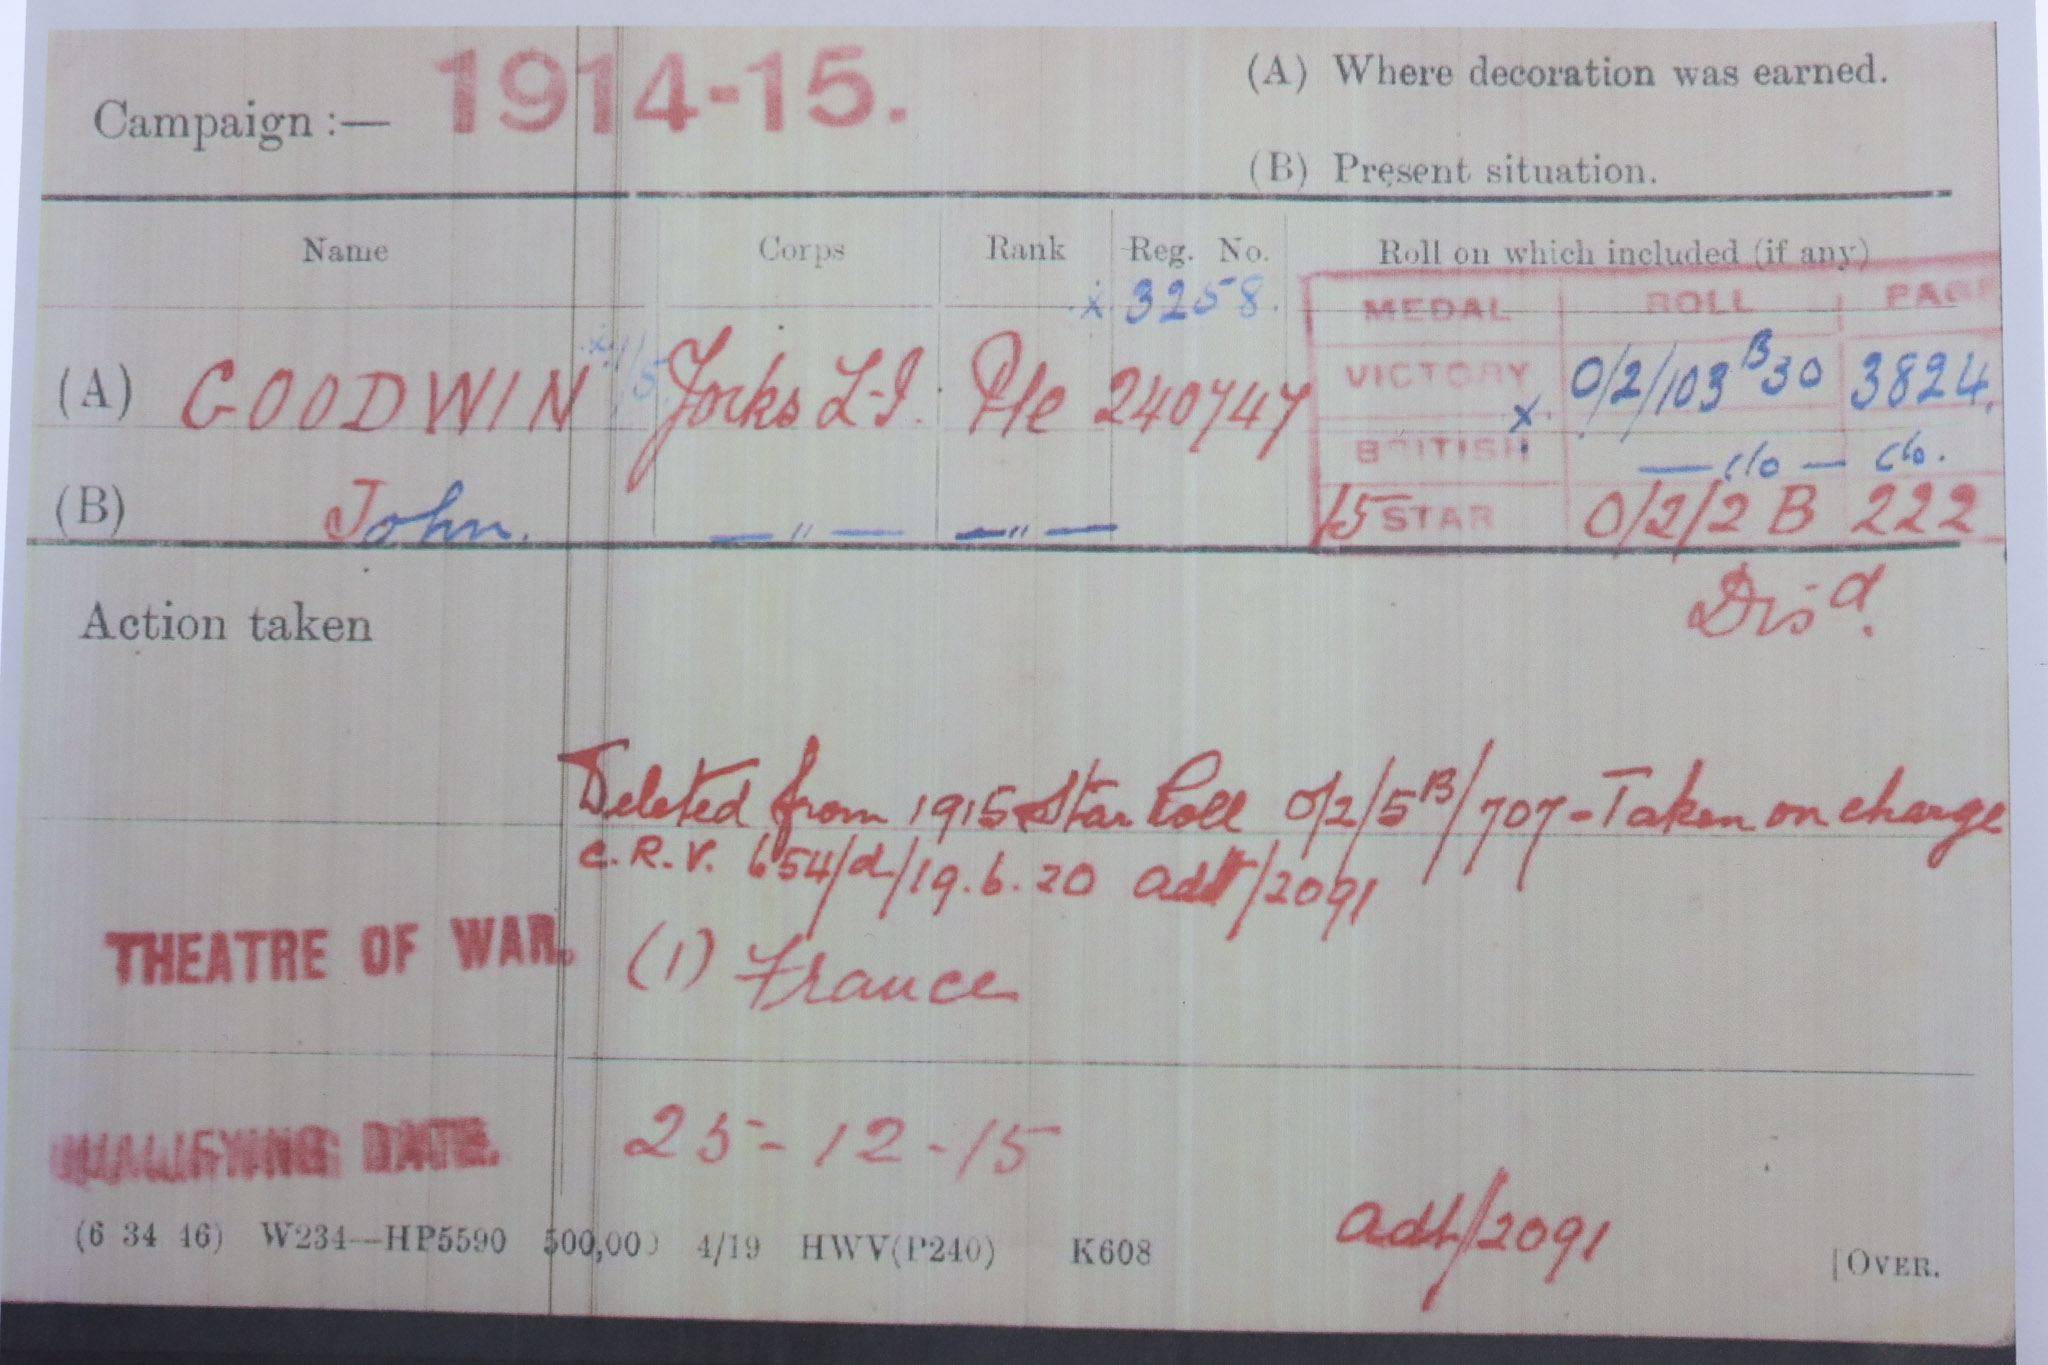 Campaign :— 1914-15.
(A) Where decoration was earned.
(B) Present situation.
Name Corps Rank Reg. No. Roll on which included (if any)
x 3258.
MEDAL ROLL PAGE
(A) GOODWIN x 1/5 Yorks L.I. Pte 240747 VICTORY x 0/2/103 B30 3824.
BRITISH — do — do.
(B) John. — " — — " — 15 STAR 0/2/2 B 222
Disd.
Action taken
Deleted from 1915 Star Roll 0/2/5B/707 - Taken on charge
C.R.V. 654/d/19.6.20 adt/2091
THEATRE OF WAR. (1) France
QUALIFYING DATE. 25-12-15
adt/2091
(6 34 46) W234—HP5590 500,000 4/19 HWV(P240) K608 [OVER.